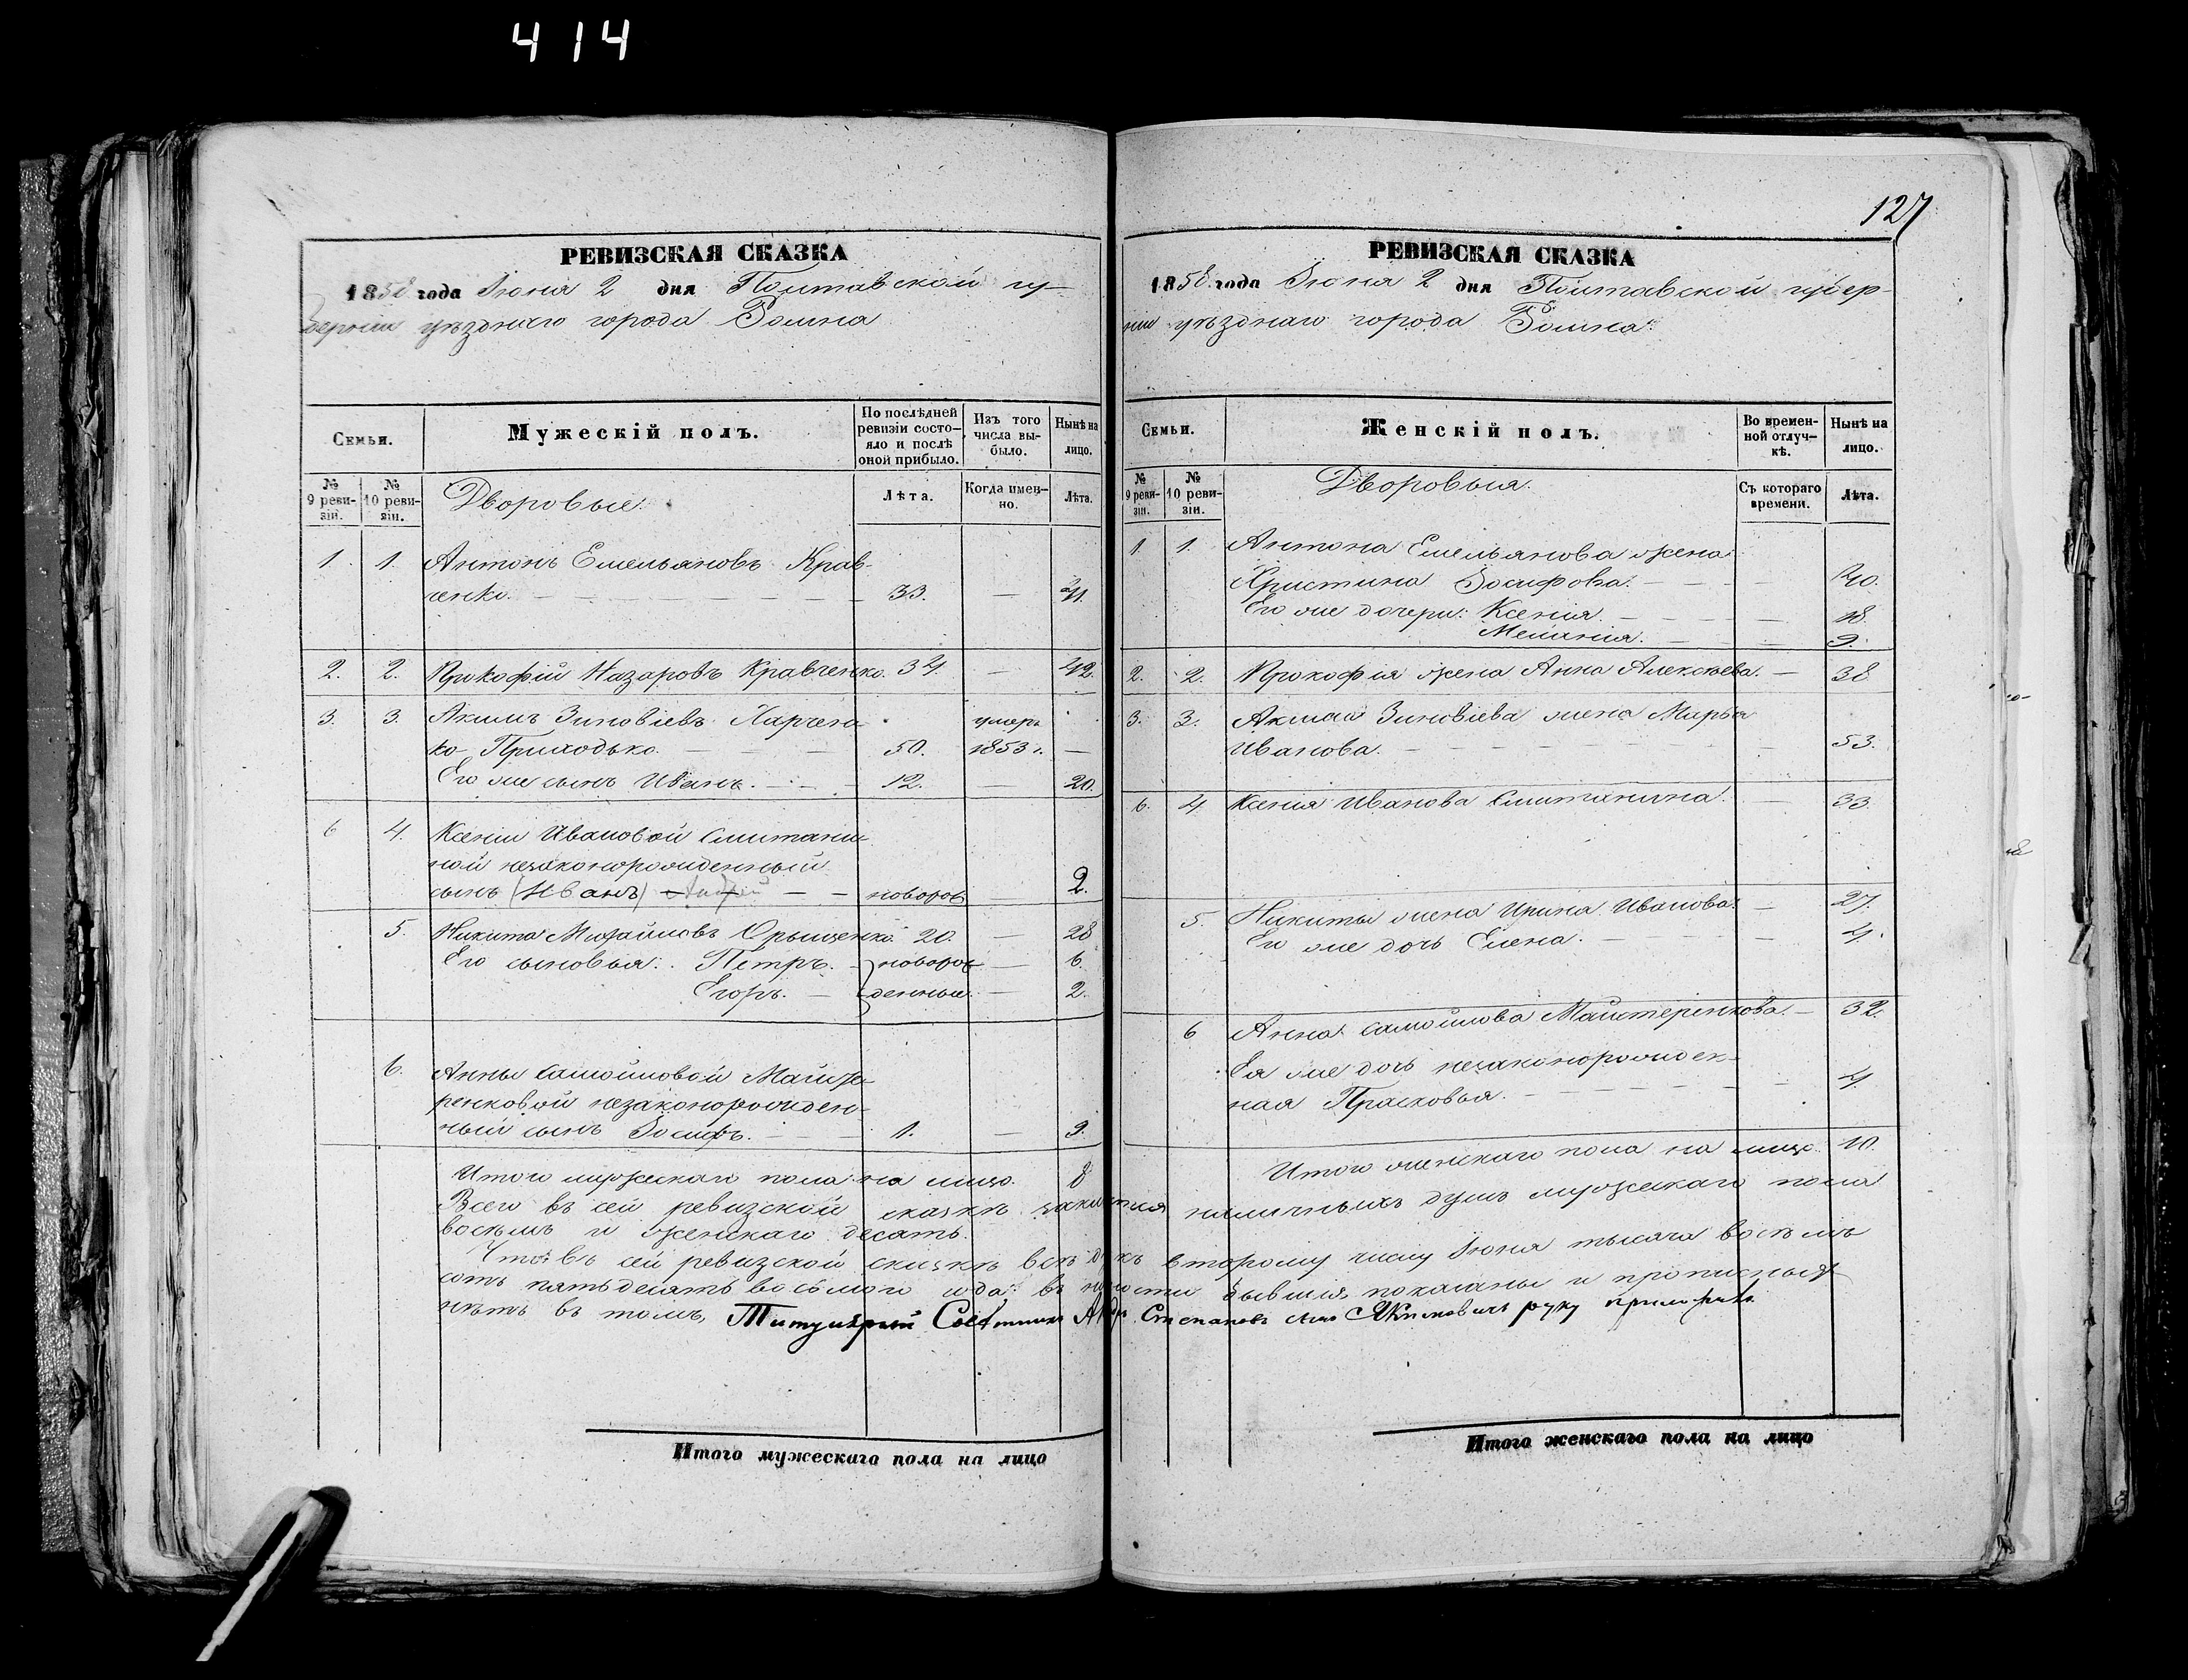 414
РЕВИЗСКАЯ СКАЗКА
1858 года Іюня 2 дня Полтавской гу-
берніи уѣзднаго города Ромна
Семьи.
Мужескій полъ.
По послѣдней ревизіи состо-яло и послѣ оной прибыло.
Изъ того числа вы-было.
Нынѣ на лицо.
№ 9 реви-зіи.
№ 10 реви-зіи.
Дворовые.
Лѣта.
Когда имен-но.
Лѣта.
1. 1. Антонъ Емельяновъ Крав-
ченко. 33. — 41.
2. 2. Прокофій Назаровъ Кравченко. 34. — 42.
3. 3. Акимъ Зиновіевъ Харчен- умеръ
ко Приходько. 50. 1853 г. —
Его же сынъ Иванъ. 12. — 20.
6 4. Ксеніи Ивановой Смитани-
ной незаконорожденный
сынъ (Иванъ) новорож — 2.
5. Никита Михайловъ Орыщенко. 20. — 28
Его сыновья: Петръ. новорож — 6.
Егоръ. денные — 2.
6. Анны Самойловой Майсте-
ренковой незаконорожден-
ный сынъ Іосифъ. 1. — 9.
Итого мужескаго пола на лицо. 8
127
РЕВИЗСКАЯ СКАЗКА
1858 года Іюня 2 дня Полтавской губер-
ніи уѣзднаго города Ромна.
Семьи.
Женскій полъ.
Во времен-ной отлуч-кѣ.
Нынѣ на лицо.
№ 9 реви-зіи.
№ 10 реви-зіи.
Дворовыя.
Съ котораго времени.
Лѣта.
1. 1. Антона Емельянова жена
Христина Іосифова. — 40.
Его же дочери: Ксенія. — 18.
Меланія. — 9.
2. 2. Прокофія жена Анна Алексѣева. — 38
3. 3. Акима Зиновіева жена Марья
Иванова. 53.
6. 4. Ксенія Иванова Смитанина. — 33.
5. Никиты жена Ирина Иванова. — 27.
Его же дочь Елена. — 4.
6 Анна Самойлова Майстеренкова. — 32.
Ея же дочь незаконорожден-
ная Прасковья. — 4.
Итого женскаго пола на лицо 10.
Всего въ сей ревизской сказкѣ наличныхъ душъ мужескаго пола
восемь и женскаго десять.
Что въ сей ревизской сказкѣ всѣ къ второму числу Іюня тысяча восемь
сотъ пятьдесятъ восьмого года въ бывшія показаны и прописныхъ
нѣтъ въ томъ, Титулярный Совѣтникъ Степановъ сынъ Якимовичъ руку приложилъ
Итого мужескаго пола на лицо
Итого женскаго пола на лицо